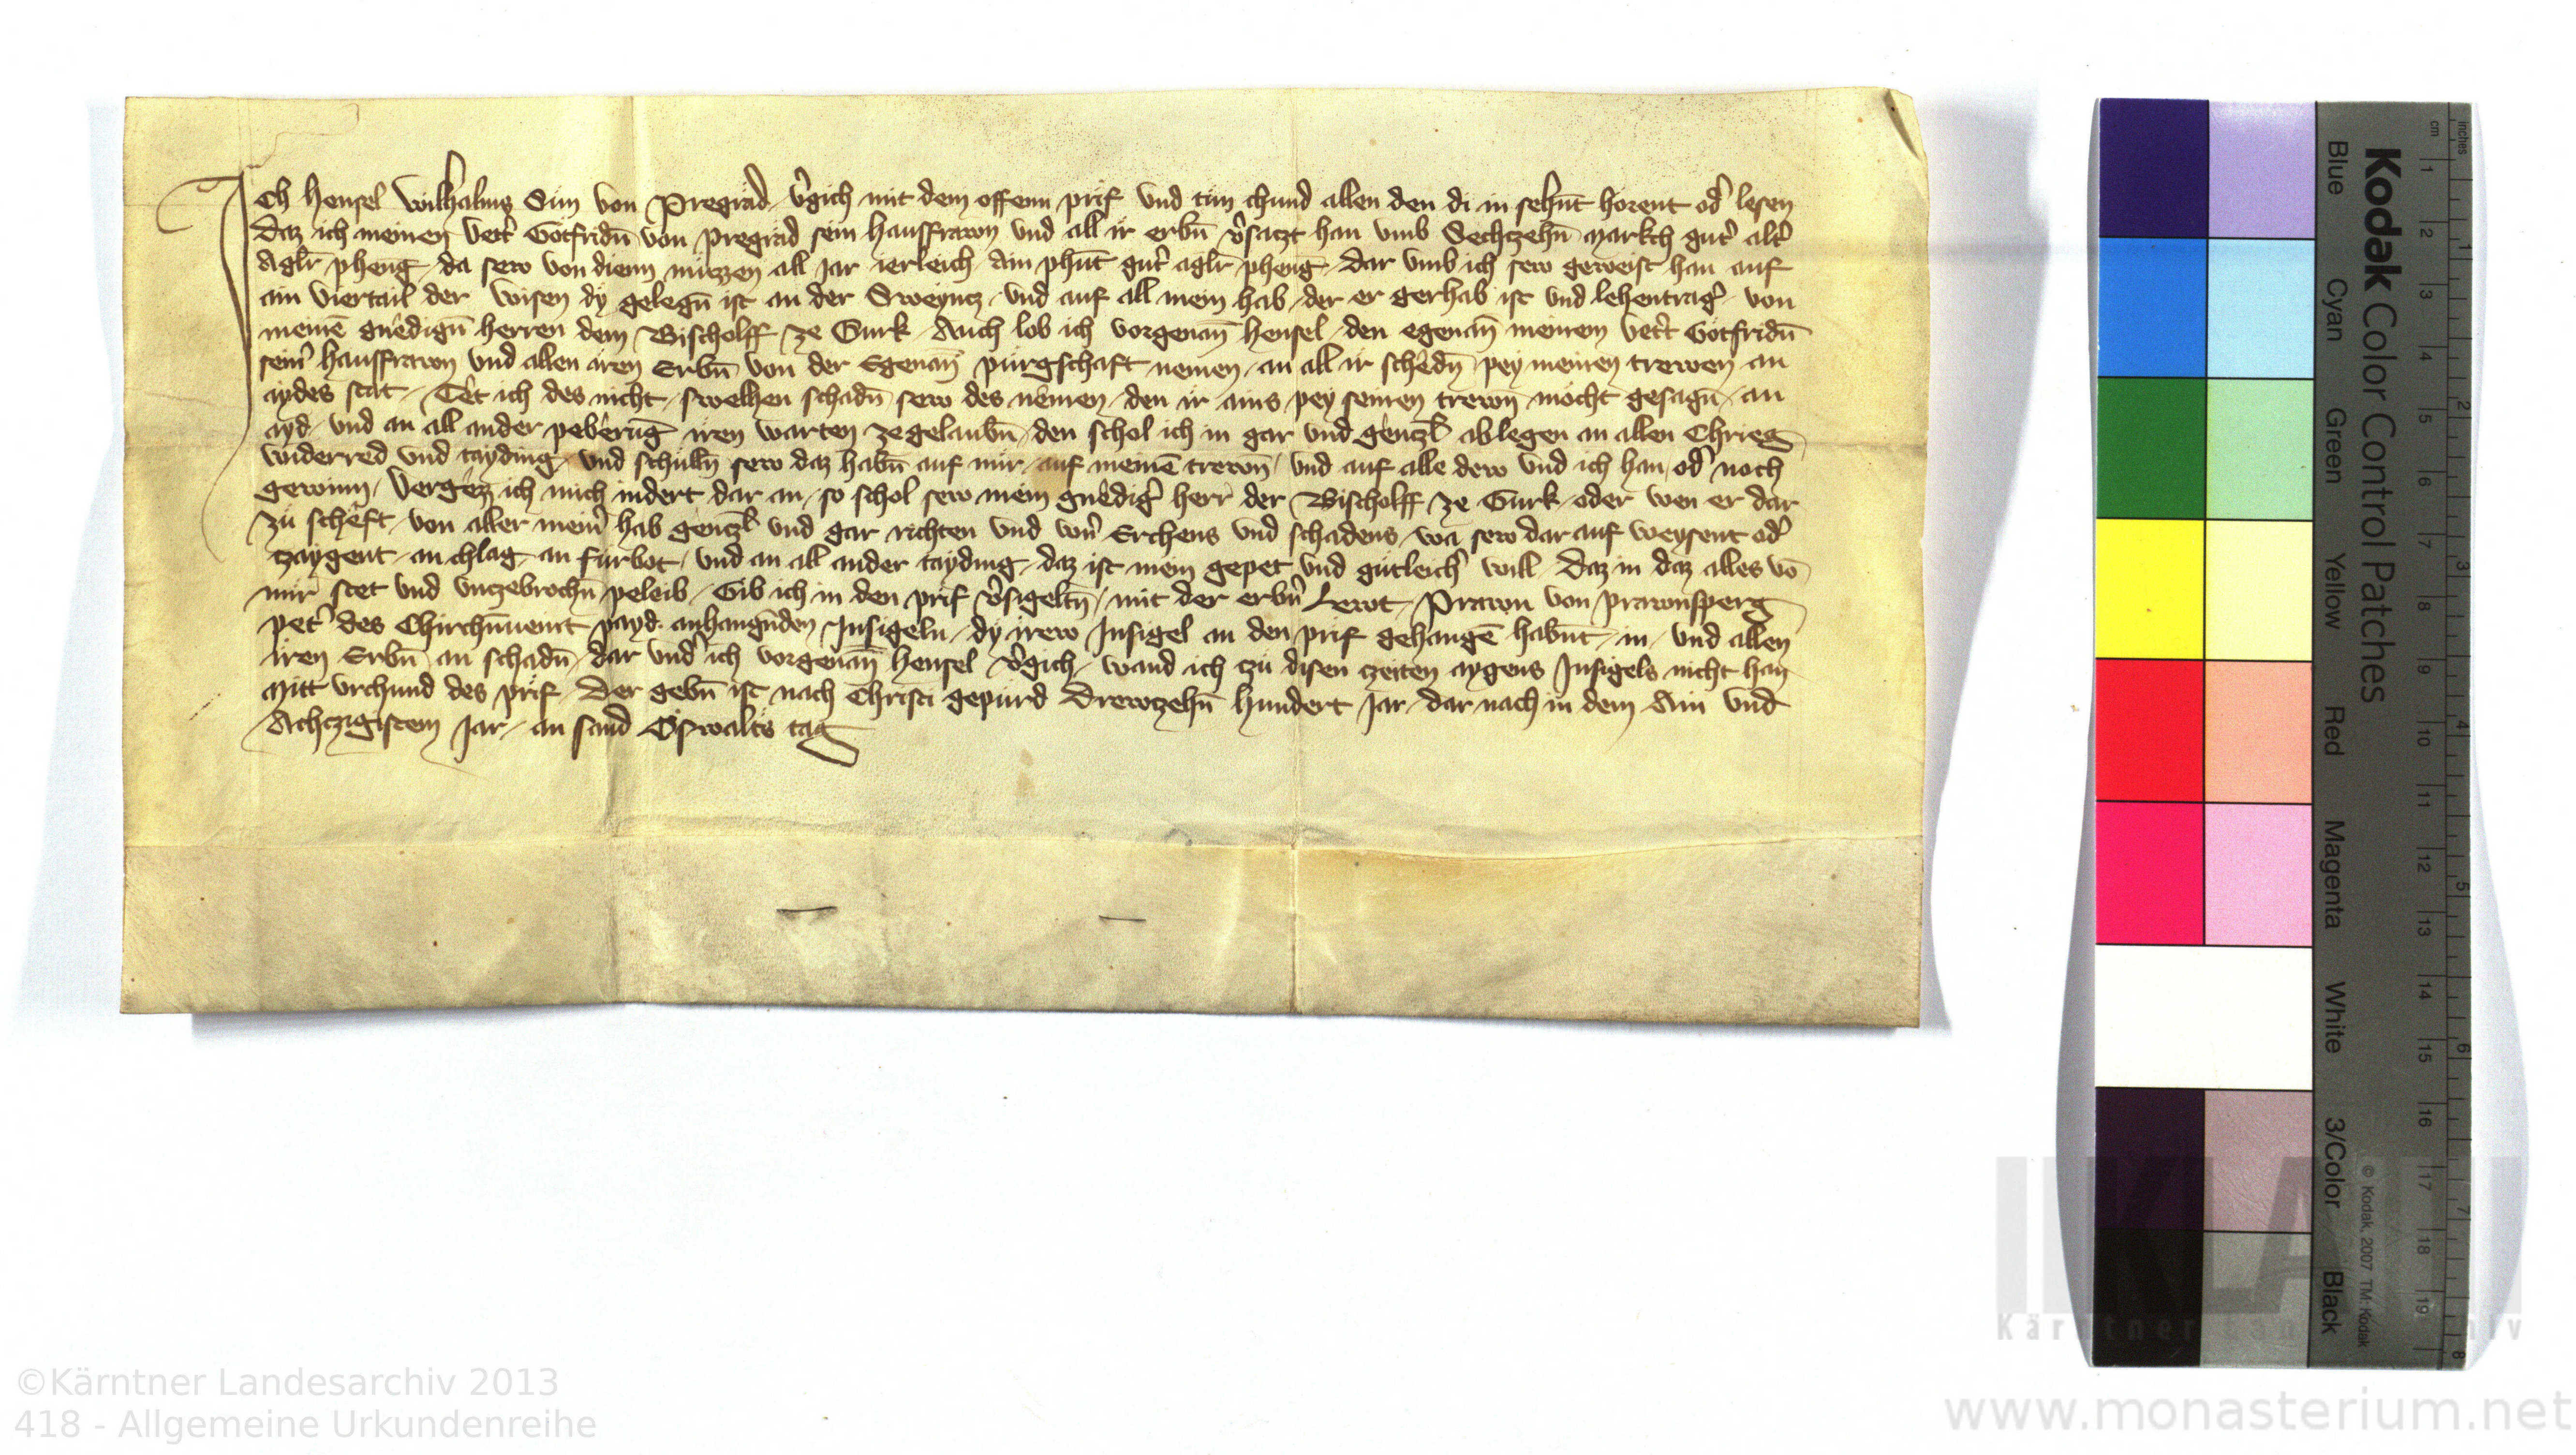 Ich Hensel Wilhalms Sun von Pregrad v̓gich mit dem offenn prif und tun chund allen den di in sehn̄t horent od̓ lesen
Daz ich meinen vett̓ Gotfridn̄ von pregrad sein hausfrawn und all ir erbn̄ v̓satzt han umb Sechtzehn̄ Markch gut̓ alt̓
Aglr̄ pheng da sew von dienn nutzzen all Jar ierleich Ain phūt gut̓ aglr̄ phēng Dar umb ich sew geweist han auf
ain viertail der wisen dy gelegn̄ ist an der Sweyncz und auf all mein hab der er gerhab ist und lehentrag̓ von
meinē gnedign̄ herren dem Bischolff ze Gurk Auch lob ich vorgenan̄ Hensel den egenan̄ meinem vett̓ Gotfridn̄
sein̓ hausfrawn und allen iren Erbn̄ von der Egenan̄ purgschaft nemen an all ir schedn̄ pey meinen trewen an
aydes stat Tet ich des nicht swelhen schadn̄ sew des nemen den ir ains pey seinen trewn̄ mocht gesagn̄ an
ayd und an all ander peberūg iren warten ze gelaubn̄ den schol ich in gar und gentzl̄ ablegen an allen Chrieg
widerred und tayding und schulln̄ sew daz habn̄ auf mir auf meinē trewn̄ und auf alle dew und ich han od̓ noch
gewinn Vergez ich mich indert dar an so schol sew mein gnedig̓ herr der Bischolff ze Gurk oder wen er dar
zu scheft von aller mein̓ hab gentzl̄ und gar richten und wern̓ Erchens und schadens wa sew dar auf weysent od̓
tzaygent an chlag an furbot und an all ander tayding daz ist mein gepet und gutleich̓ will Daz in daz alles vō
mir stet und untzebrochn̄ peleib Gib ich in den prif v̓sigeltn̄ mit der erbn̓ Lewt Prawn von prawnsperg
pet̓ des Chirchn̄uent payd anhangn̄den Insigeln dy irew Insigel an den prif gehangē habn̄t in und allen
iren Erbn̄ an schadn̄ dar und̓ ich vorgenan̄ Hensel v̓gich wand ich tzu disen tzeiten aygens Insigels nicht han
Mitt urchund des prif Der gebn̄ ist nach Christi gepurd Drewtzehn̄ hundert Jar dar nach in dem Ain und
Achtzigistem Jar an sand Oswalts tag
Kodak Color Control Patches
Blue Cyan Green Yellow Red Magenta White 3/Color Black
© Kodak, 2007 TM: Kodak
cm 1 2 3 4 5 6 7 8 9 10 11 12 13 14 15 16 17 18 19
inches 1 2 3 4 5 6 7 8
KLA
Kärntner Landesarchiv
©Kärntner Landesarchiv 2013
418 - Allgemeine Urkundenreihe
www.monasterium.net